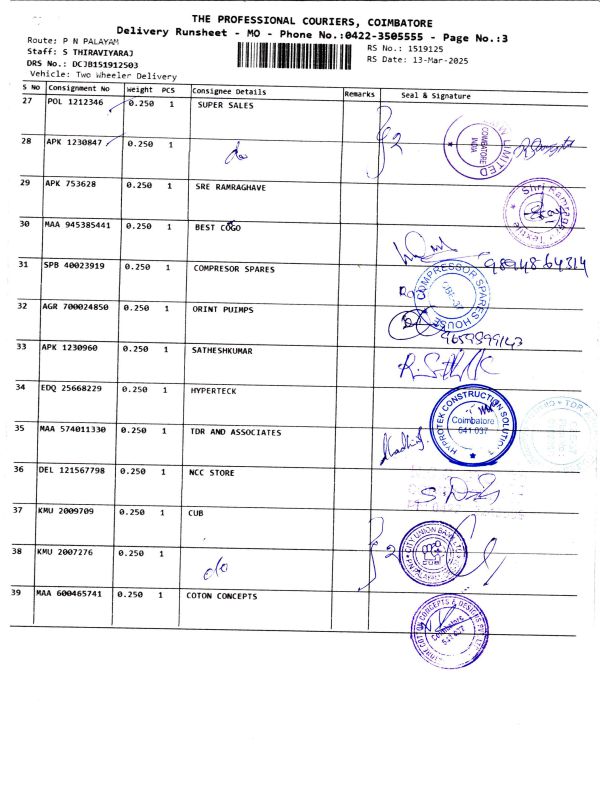 THE PROFESSIONAL COURIERS, COIMBATORE
Delivery Runsheet - MO - Phone No.:0422-3505555 - Page No.:3
Route: P N PALAYAM
RS No.: 1519125
Staff: S THIRAVIYARAJ
RS Date: 13-Mar-2025
DRS No.: DCJB151912503
Vehicle: Two Wheeler Delivery
S No Consignment No Weight PCS Consignee Details Remarks Seal & Signature
27 POL 1212346 0.250 1 SUPER SALES
2
LIMITED COIMBATORE INDIA
28 APK 1230847 0.250 1 do
29 APK 753628 0.250 1 SRE RAMRAGHAVE
Shri Textile
30 MAA 945385441 0.250 1 BEST COGO
9894864314
31 SPB 40023919 0.250 1 COMPRESOR SPARES
COMPRESSOR SPARES HOUSE
32 AGR 700024850 0.250 1 ORINT PUIMPS
33 APK 1230960 0.250 1 SATHESHKUMAR
34 EDQ 25668229 0.250 1 HYPERTECK
HYPROTEK CONSTRUCTION SOLUTIONS Coimbatore 641 037
TDR
35 MAA 574011330 0.250 1 TDR AND ASSOCIATES
36 DEL 121567798 0.250 1 NCC STORE
37 KMU 2009709 0.250 1 CUB
2
CITY UNION BANK LTD CUB
38 KMU 2007276 0.250 1 do
39 MAA 600465741 0.250 1 COTON CONCEPTS
COTTON CONCEPTS & DESIGNS PVT LTD Coimbatore